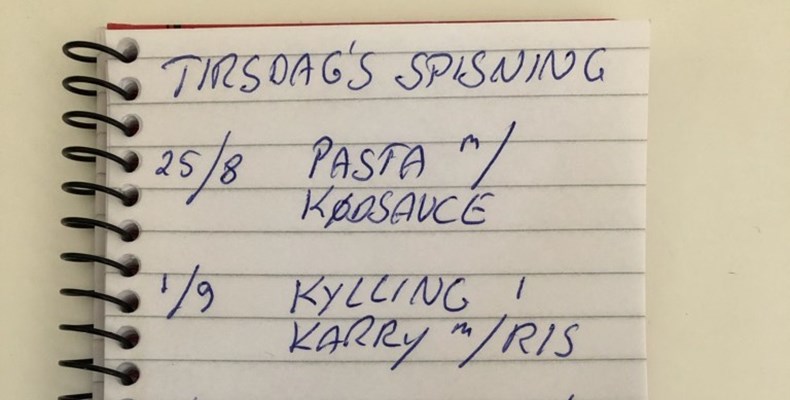 TIRSDAG'S SPISNING
25/8 PASTA m/
KØDSAUCE
1/9 KYLLING I
KARRY m/RIS